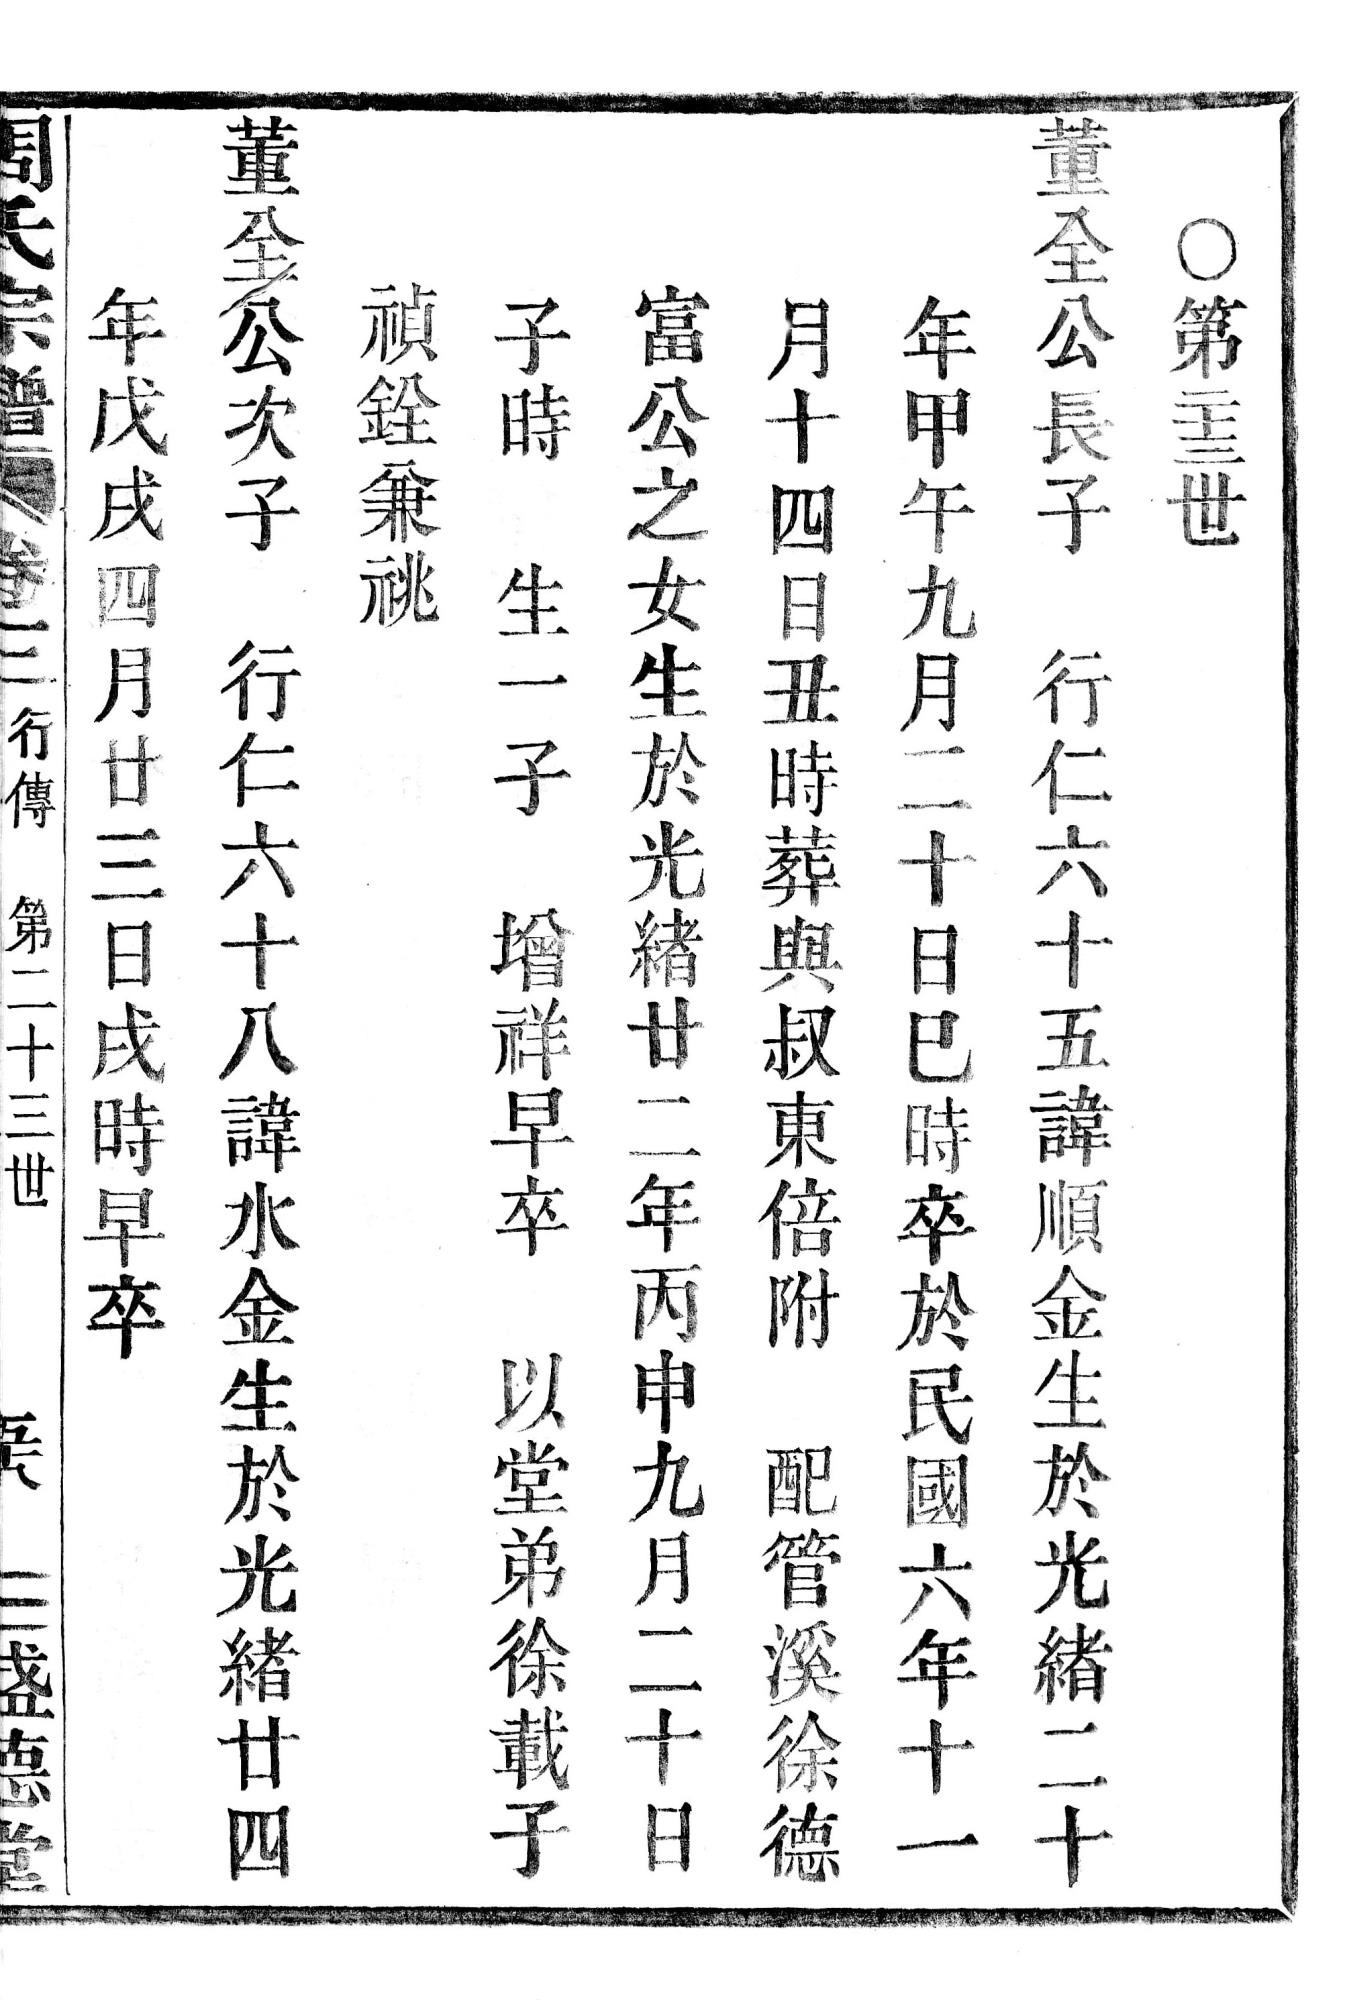 ○第二十三世
董全公長子　行仁六十五諱順金生於光緒二十
年甲午九月二十日巳時卒於民國六年十一
月十四日丑時葬與叔東倍附　配管溪徐德
富公之女生於光緒廿二年丙申九月二十日
子時　生一子　增祥早卒　以堂弟徐載子
禎銓兼祧
董全公次子　行仁六十八諱水金生於光緒廿四
年戊戌四月廿三日戌時早卒
周氏宗譜　卷二　行傳　第二十三世　盛德堂